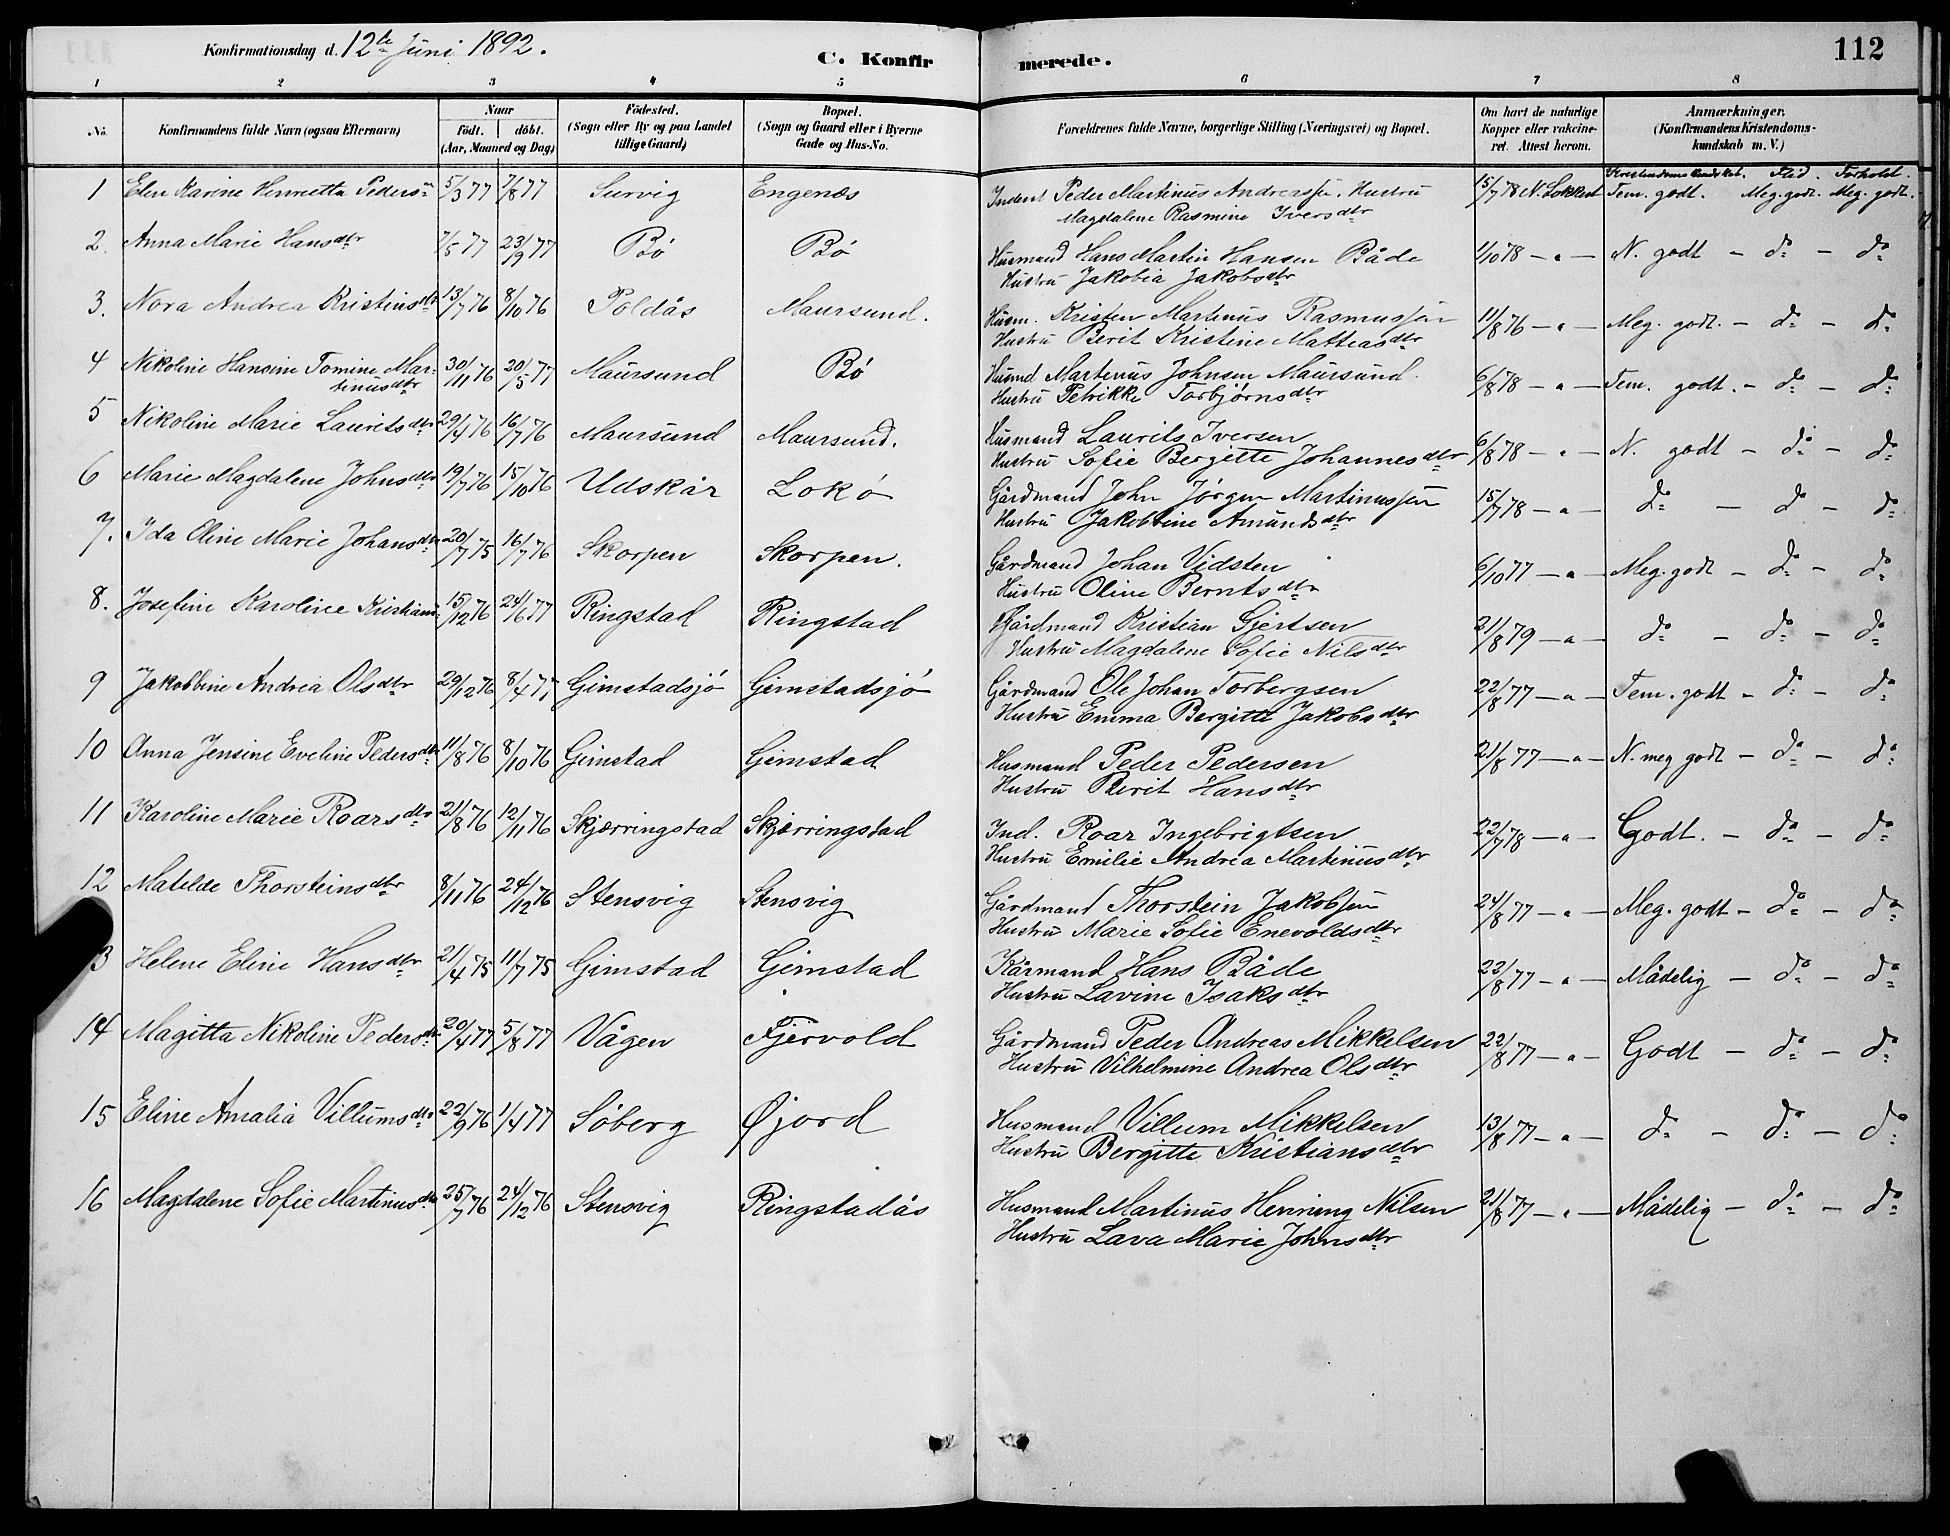 Konfirmationsdag d. 12te Juni 1892.
C. Konfirmerede.
112
1 2 3 4 5 6 7 8
No.
Konfirmandens fulde Navn (ogsaa Efternavn)
Naar
födt. döbt.
(Aar, Maaned og Dag)
Födested.
(Sogn eller By og paa Landet
tillige Gaard)
Bopæl.
(Sogn og Gaard eller i Byerne
Gade og Hus-No.
Forældrenes fulde Navne, borgerlige Stilling (Næringsvei) og Bopæl.
Om havt de naturlige
Kopper eller vakcine-
ret. Attest herom.
Anmærkninger.
(Konfirmandens Kristendoms-
kundskab m. V.)
Kristendomskundskab. Flid. Forhold.
1 Elen Karine Henrietta Peders 5/3 77 7/8 77 Survig Engenæs Inderst Peder Martinus Andreassen, Hustru 15/7 78 N. Lokkert Tem. godt. Meg. godt. Meg. godt.
Magdalene Rasmine Iversdtr
2. Anna Marie Hansdtr 7/5 77 23/9 77 Bö Bö Husmand Hans Martin Hansen Både 1/10 78 - " - N. godt - do - do
Hustru Jakobia Jakobsdtr
3. Nora Andrea Kristinsdtr 13/7 76 8/10 76 Poldås Maursund. Husm. Kristen Martinus Rasmussen 11/8 76 - " - Meg. godt. - do - do
Hustru Berit Kristine Matteasdtr
4 Nikoline Hansine Tomine Mar- 30/11 76 20/5 77 Maursund Bö Husmd Martinus Johnsen Maursund. 6/8 78 - " - Tem. godt. - do - do
tinusdtr Hustru Petrikke Torbjørnsdtr
5 Nikoline Marie Lauritsdtr 29/4 76 16/7 76 Maursund Maursund. Husmand Laurits Iversen 6/8 78 - " - N. godt - do - do
Hustru Sofie Bergitte Johannesdtr
6 Marie Magdalene Johnsdtr 19/7 76 15/10 76 Udskår Lokø Gårdmand John Jörgen Martinussen 15/7 78 - " - do - do - do
Hustru Jakobbine Amundsdtr
7. Ida Oline Marie Johansdtr 20/7 75 16/7 76 Skorpen Skorpen. Gårdmand Johan Vidsten 6/10 77 - " - Meg. godt - do - do
Hustru Oline Berntsdtr
8. Josefine Karoline Kristians 15/12 76 24/6 77 Ringstad Ringstad Gårdmand Kristian Gjertsen 21/8 79 - " - do - do - do
Hustru Magdalene Sofie Nilsdtr
9 Jakobbine Andrea Olsdtr 29/12 76 8/4 77 Gimstadsjö Gimstadsjö Gårdmand Ole Johan Torbergsen 22/8 77 - " - Tem. godt - do - do
Hustru Emma Bergitte Jakobsdtr
10 Anna Jensine Eveline Pedersdtr 11/8 76 8/10 76 Gimstad Gimstad Husmand Peder Pedersen 21/8 77 - " - N. meg godt - do - do
Hustru Berit Hansdtr
11 Karoline Marie Roarsdtr 21/8 76 12/11 76 Skjærringstad Skjærringstad Ind. Roar Ingebrigtsen 22/7 78 - " - Godt. - do - do
Hustru Emilie Andrea Martinusdtr
12 Matilde Thorsteinsdtr 8/11 76 24/12 76 Stensvig Stensvig Gårdmand Thorstein Jakobsen 24/8 77 - " - Meg. godt - do - do
Hustru Marie Sofie Enevoldsdtr
3 Helene Eline Hansdtr 21/4 75 11/7 75 Gimstad Gimstad Kårmand Hans Både 22/8 77 - " - Mådelig - do - do
Hustru Lavine Isaksdtr
14 Magitta Nikoline Pedersdtr 20/4 77 5/8 77 Vågen Fjervold Gårdmand Peder Andreas Mikkelsen 22/8 77 - " - Godt - do - do
Hustru Vilhelmine Andrea Olsdtr
15 Eline Amalia Villumsdtr 22/9 76 1/4 77 Söberg Øjord Husmand Villum Mikkelsen 13/8 77 - " - do - do - do
Hustru Bergitte Kristiansdtr
16 Magdalene Sofie Martinusdtr 25/7 76 24/12 76 Stensvig Ringstadås Husmand Martinus Henning Nilsen 21/8 77 - " - Mådelig - do - do
Hustru Lava Marie Johnsdtr